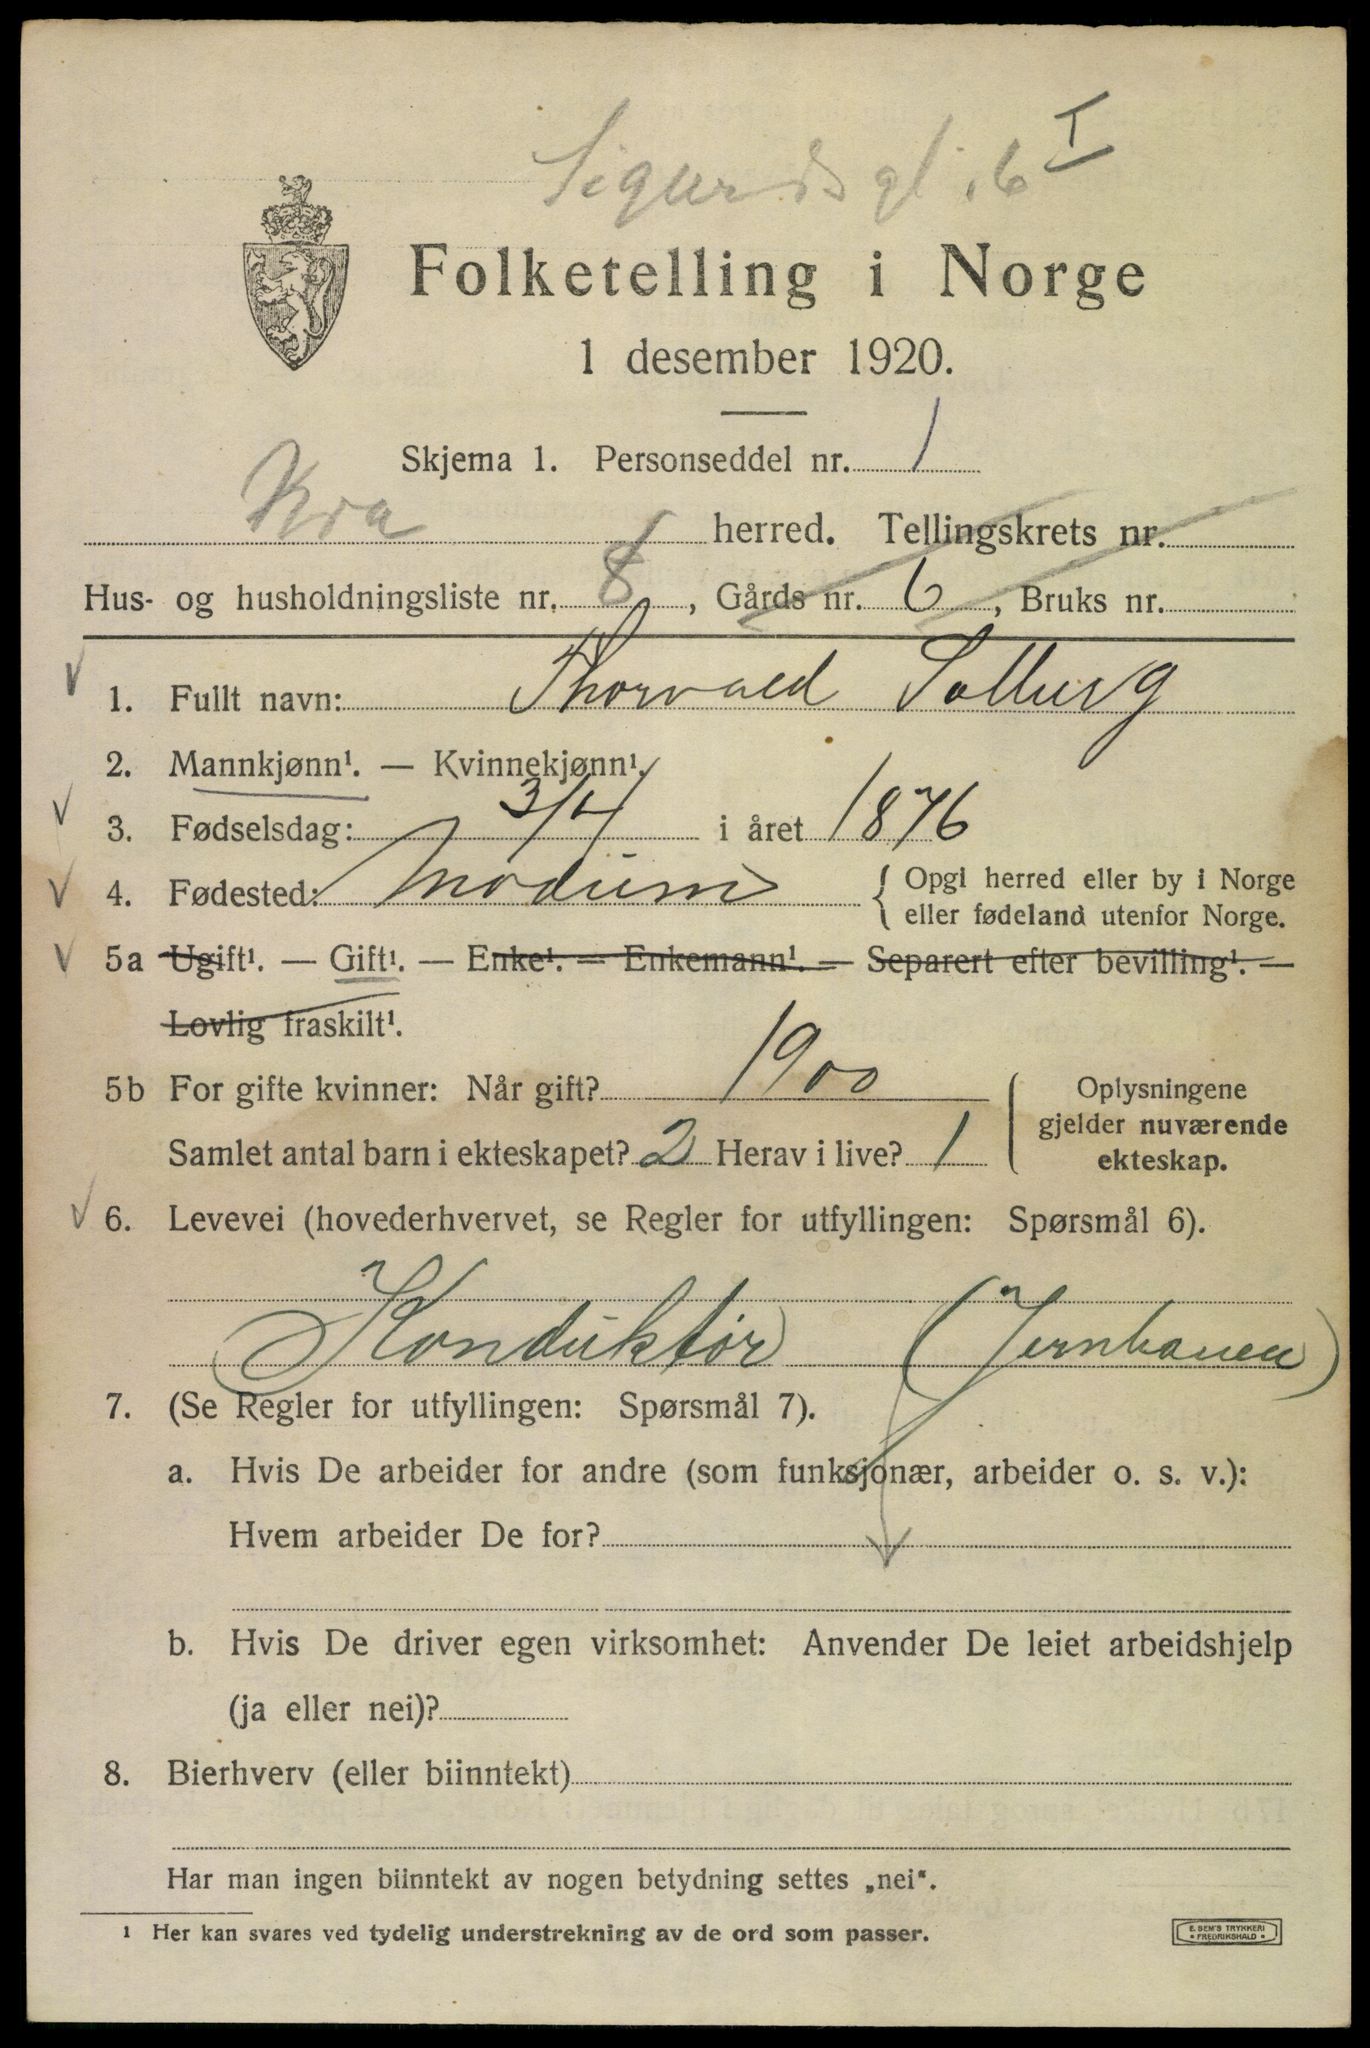 Sigurdsgt. 6 I
Folketelling i Norge
1 desember 1920.
Skjema 1. Personseddel nr. 1
Kra herred. Tellingskrets nr.
Hus- og husholdningsliste nr. 8, Gårds nr. 6, Bruks nr.
1. Fullt navn: Thorvald Solberg
2. Mannkjønn¹. — Kvinnekjønn¹.
3. Fødselsdag: 3/4 i året 1876
4. Fødested: Modum { Opgi herred eller by i Norge
eller fødeland utenfor Norge.
5a Ugift¹. — Gift¹. — Enke¹. — Enkemann¹. — Separert efter bevilling¹. —
Lovlig fraskilt¹.
5b For gifte kvinner: Når gift? 1900
Samlet antal barn i ekteskapet? 2 Herav i live? 1
Oplysningene
gjelder nuværende
ekteskap.
6. Levevei (hovederhvervet, se Regler for utfyllingen: Spørsmål 6).
Konduktør (Jernbanen)
7. (Se Regler for utfyllingen: Spørsmål 7).
a. Hvis De arbeider for andre (som funksjonær, arbeider o. s. v.):
Hvem arbeider De for?
b. Hvis De driver egen virksomhet: Anvender De leiet arbeidshjelp
(ja eller nei)?
8. Bierhverv (eller biinntekt)
Har man ingen biinntekt av nogen betydning settes „nei“.
¹ Her kan svares ved tydelig understrekning av de ord som passer.
E. SEM'S TRYKKERI
• FREDRIKSHALD •